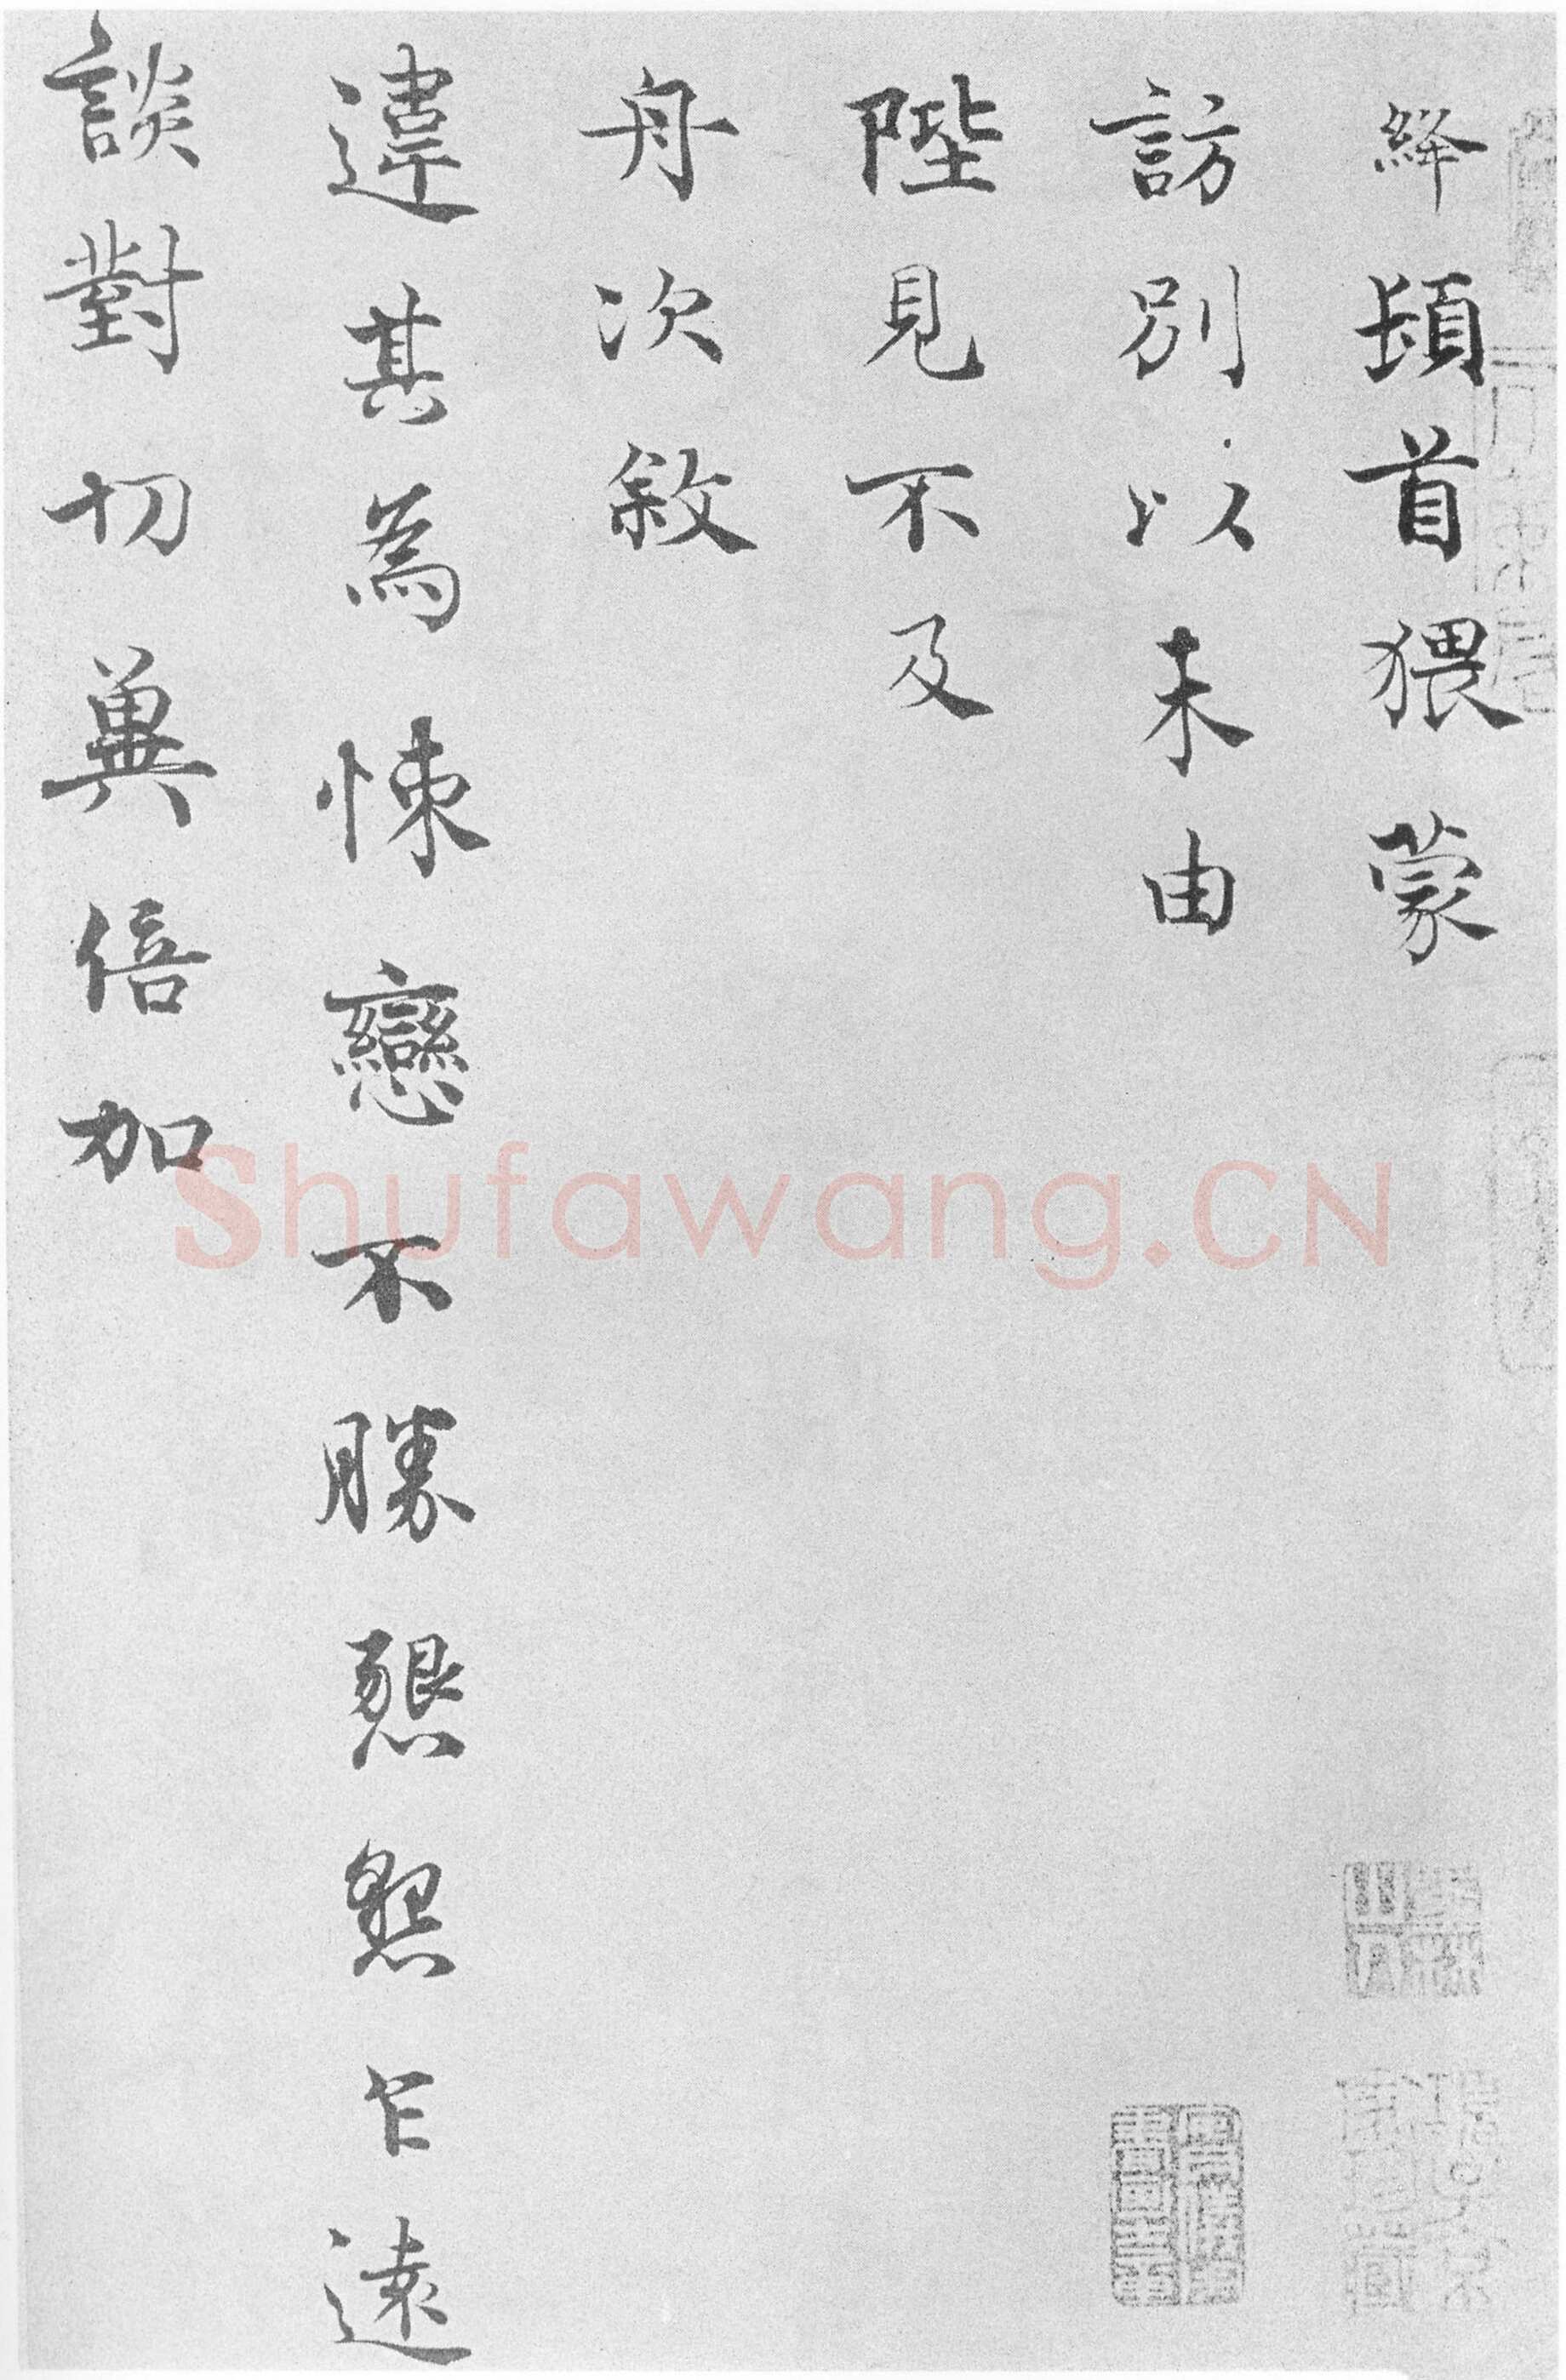 絳頓首猥蒙
訪別以未由
陛見不及
舟次敘
違其為悚戀不勝懇懇乍遠
談對切冀倍加
Shufawang.CN